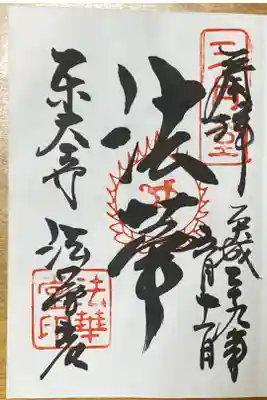 奉拝
三月堂
平成二十九年
月十一日
法華
東大寺 法華堂
法華堂印